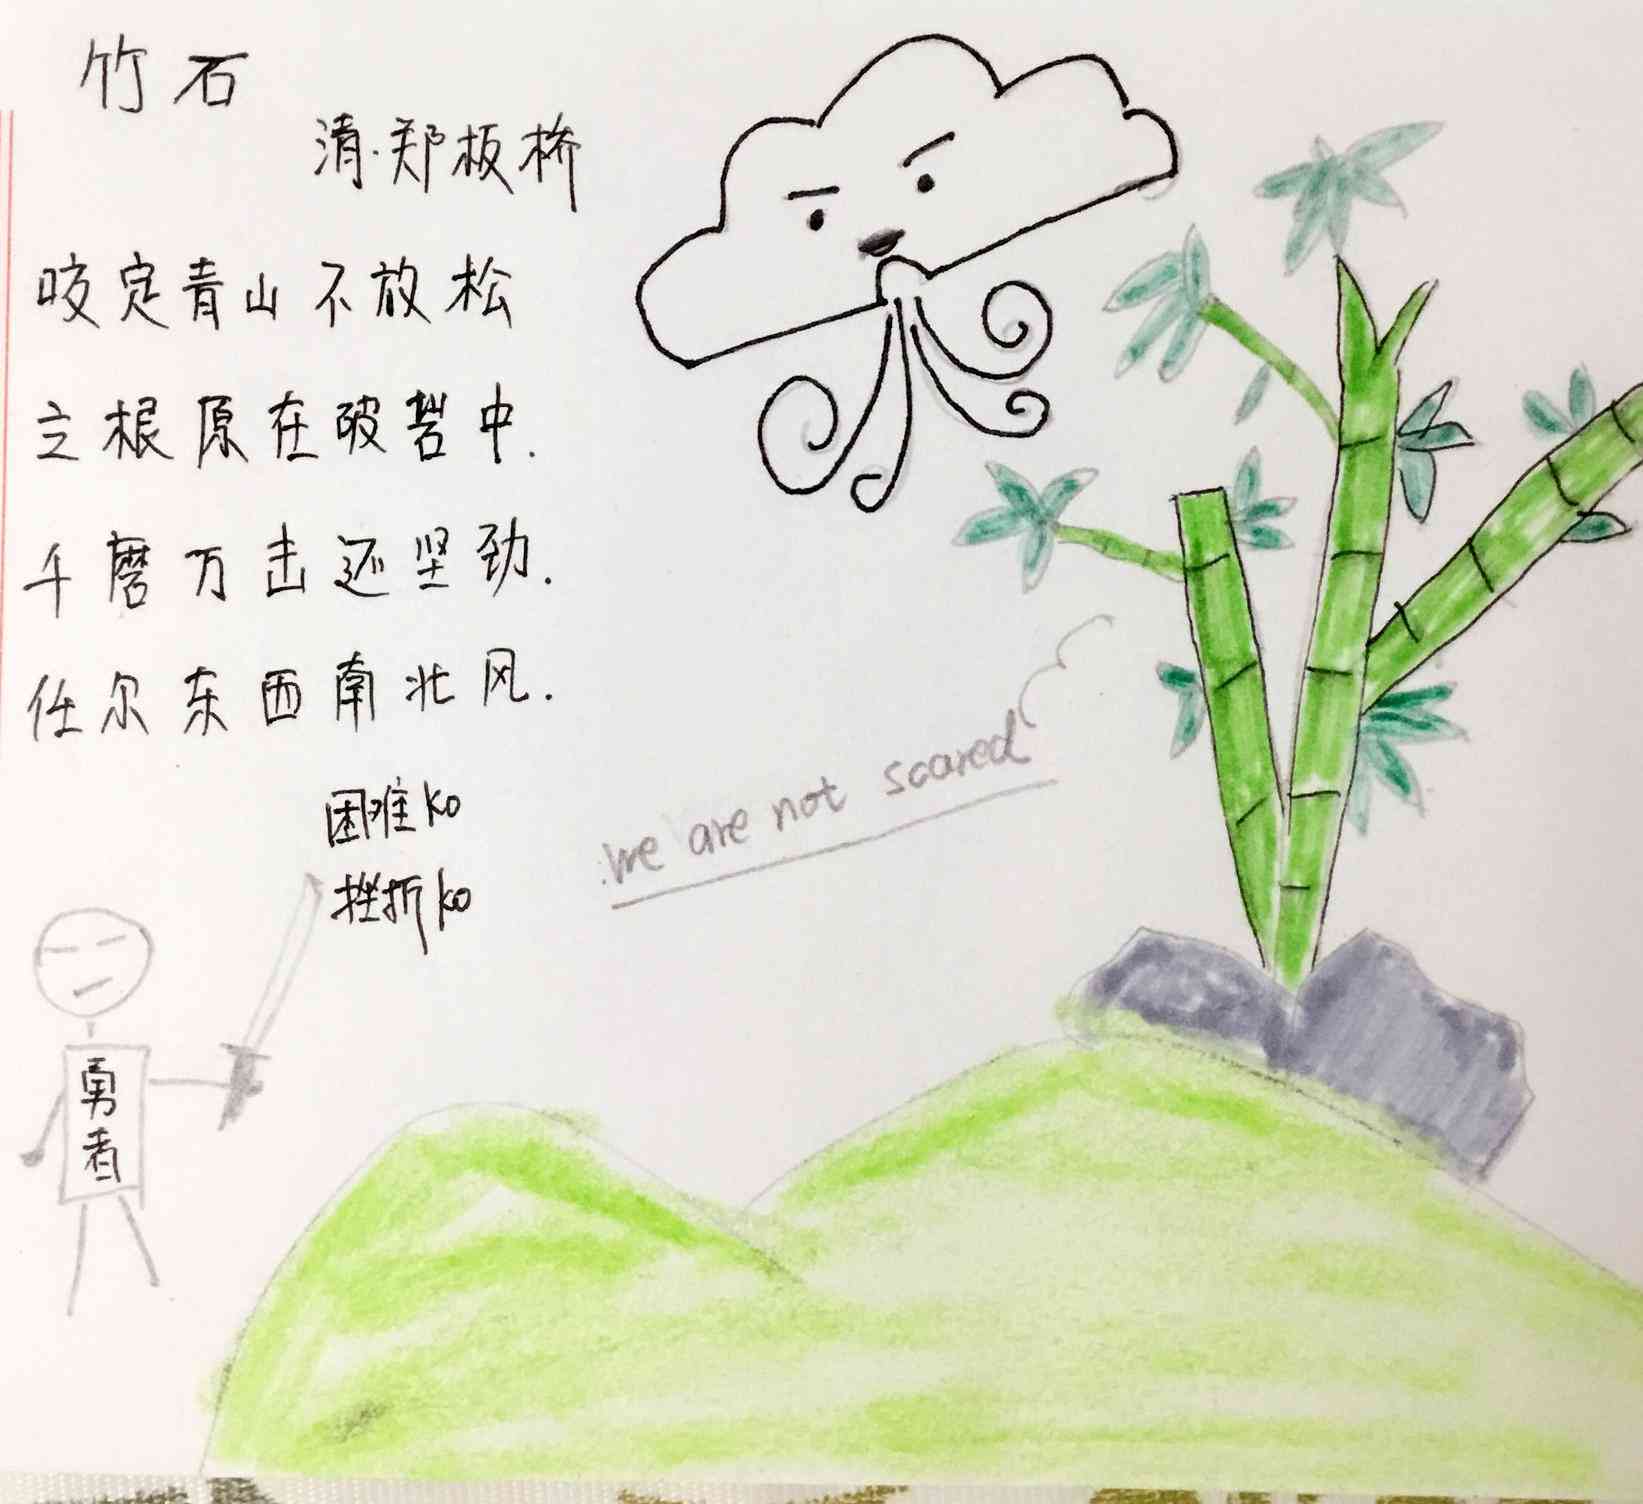 竹石
清·郑板桥
咬定青山不放松
立根原在破岩中.
千磨万击还坚劲.
任尔东西南北风.
困难ko
挫折ko
we are not scared
勇者